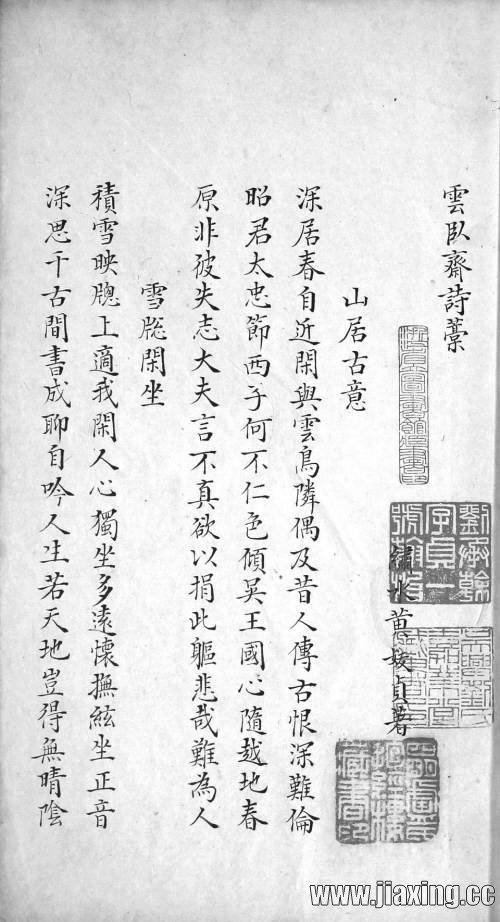 雲臥齋詩藁
繡水黃媛貞著
山居古意
深居春自近閑與雲鳥隣偶及昔人傳古恨深難倫
昭君太忠節西子何不仁色傾吳王國心隨越地春
原非彼失志大夫言不真欲以捐此軀悲哉難為人
雪牕閑坐
積雪映牕上適我閑人心獨坐多遠懷撫絃坐正音
深思千古間書成聊自吟人生若天地豈得無晴陰
劉承幹字貞一號翰怡
吳興劉氏嘉業堂藏書印
www.jiaxing.cc